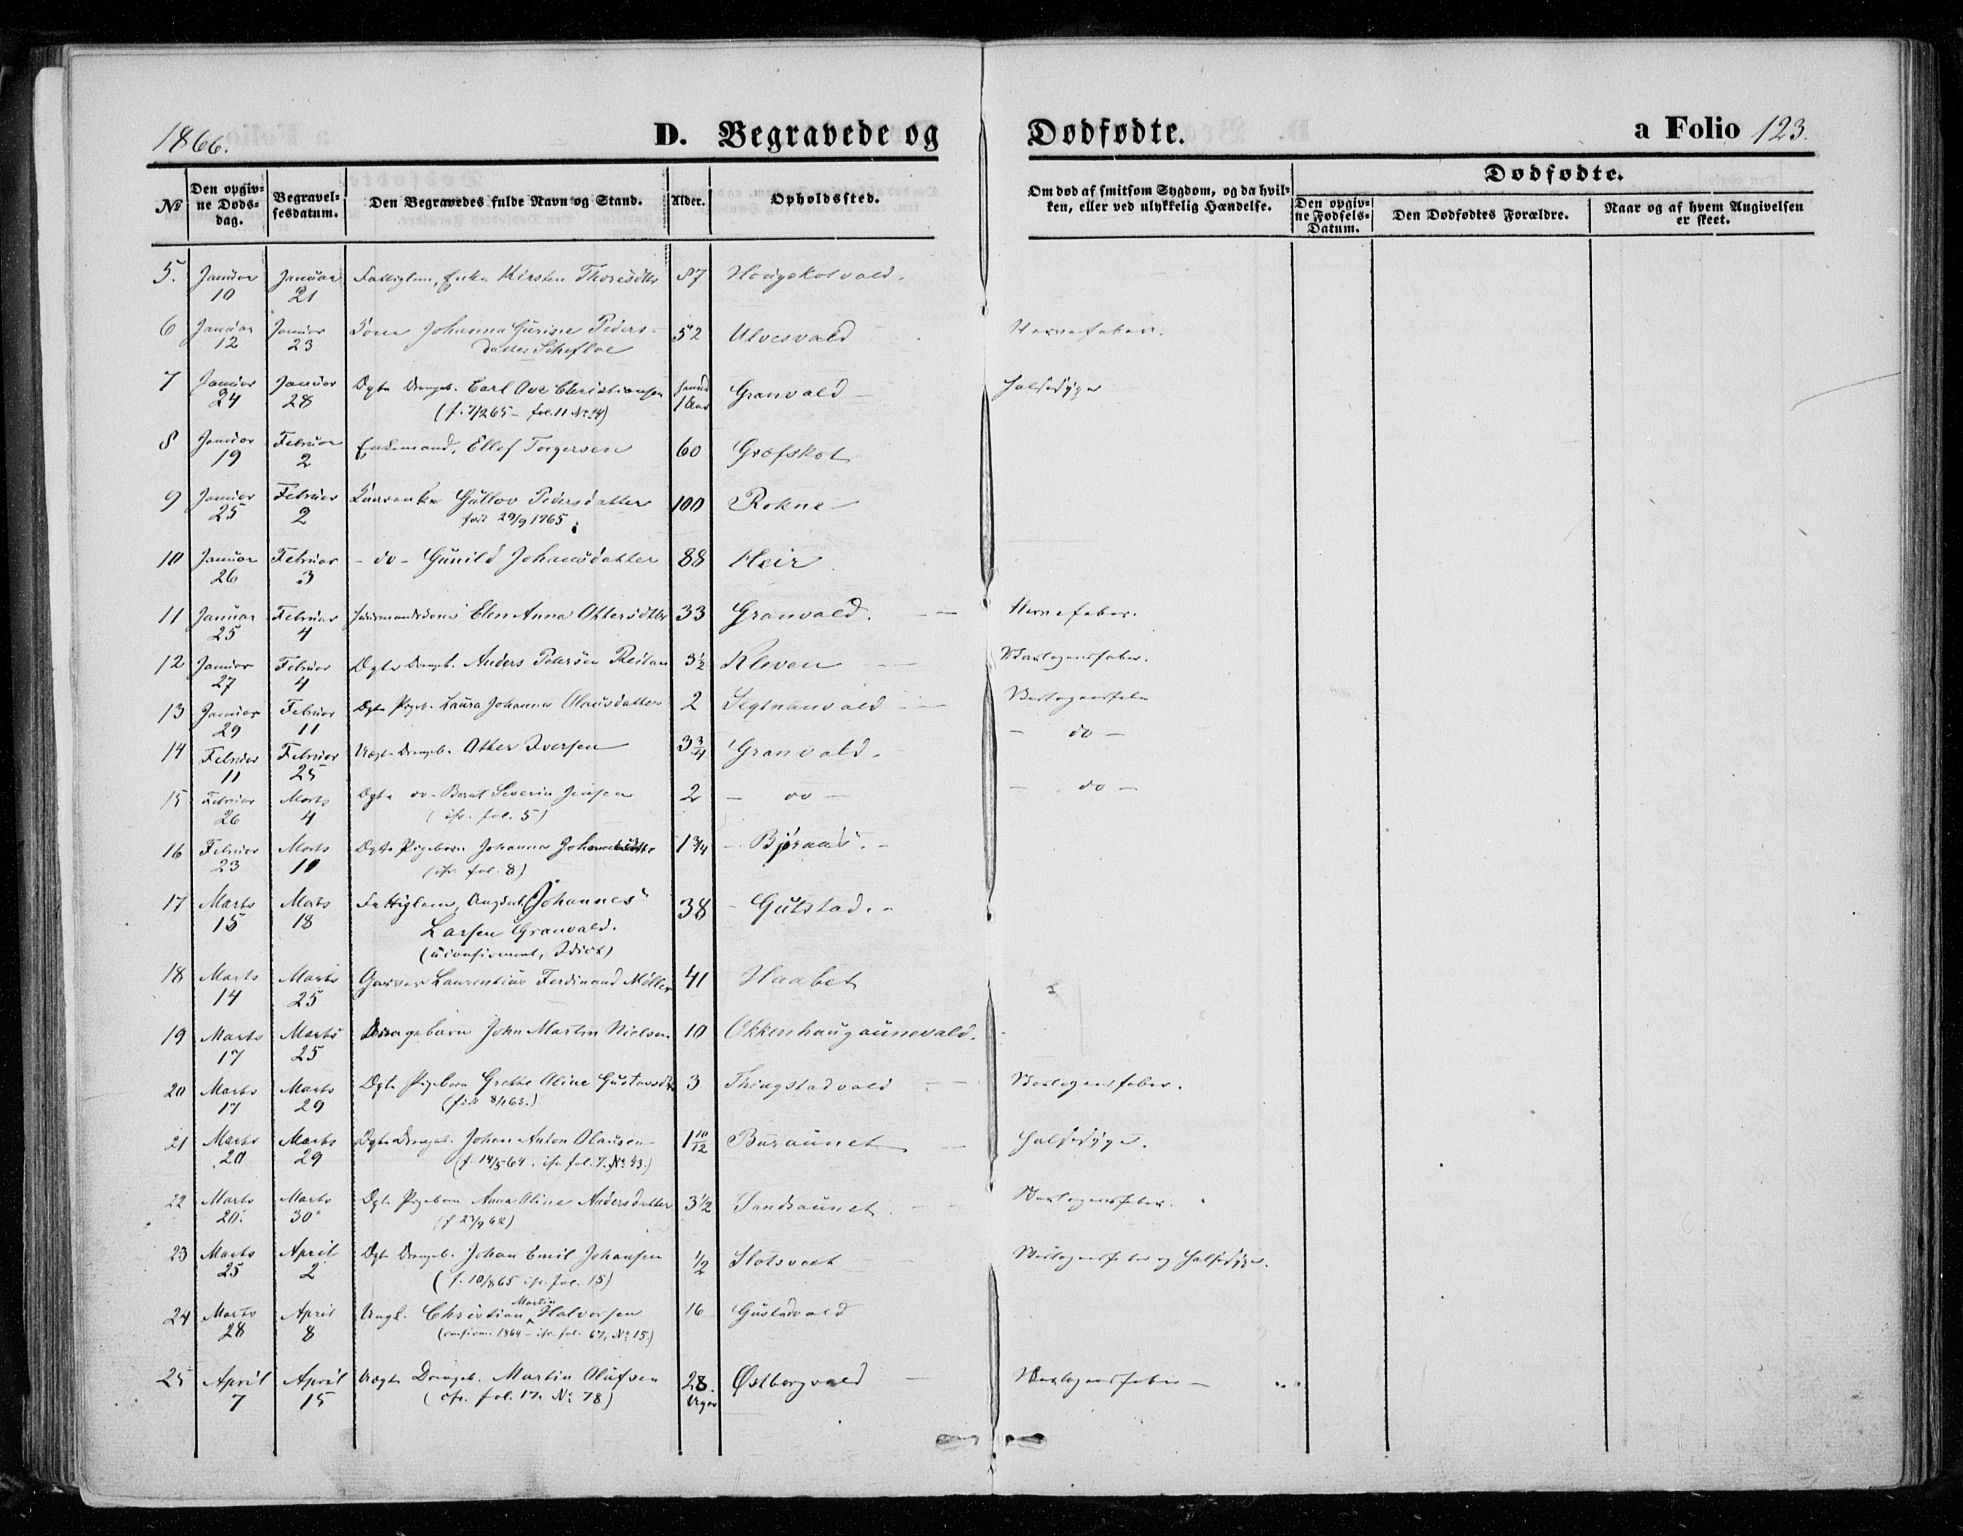 1866. D. Begravede og Dødfødte. a Folio 123.
№ Den opgivne Døds-dag. Begravelsesdatum. Den Begravedes fulde Navn og Stand. Alder. Opholdssted. Om død af smitsom Sygdom, og da hvilken, eller ved ulykkelig Hændelse. Dødfødte.
Den opgivne Fødsels-Datum. Den Dødfødtes Forældre. Naar og af hvem Angivelsen er skeet.
5. Januar 10 Januar 21 Fattiglem, Enke Kirsten Thoresdtr 87 Hougskotvald.
6 Januar 12 Januar 23 Kone Johanna Gurine Peders- 52 Ulvesvald Nervefeber.
datter Schefloe
7 Januar 24 Januar 28 Dgte Drengeb. Carl Ove Christiansen 1 Aar Granvald Halssyge
(f. 7/2 65 - fol. 11 No 14)
8 Januar 19 Februar 2 Enkemand, Ellef Torgersen 60 Grofskot
9 Januar 25 Februar 2 Gullov Pedersdatter 100 Rokne
født 29/9 1765
10 Januar 26 Februar 3 - do - Gunild Johansdatter 88 Heir
11 Januar 25 Februar 4 Elen Anna Ottersdtr 33 Granvald. Nervefeber.
12 Januar 27 Februar 4 Dgte Drengb. Anders Petersen Reitan 3½ Kleven
13 Januar 29 Februar 11 Dgte Pigeb. Laura Johanna Olausdatter 2 Segtnanvald
14 Februar 11 Februar 25 Uægte Drengeb. Otter Iversen 3¾ Granvald. - do -
15 Februar 26 Marts 4 Dgte do - Bernt Severin Jensen 2 - do - - do -
(cfr. fol. 5)
16 Februar 23 Marts 10 Dgte Pigebarn Johanna 1¾ - Bjøraas. -
(cfr. fol. 8)
17 Marts 15 Marts 18 Fattiglem, Ungkarl Johannes 38 - Gutstad. -
Larsen Granvald.
(uconfirmeret, Idiot)
18 Marts 14 Marts 25 Garver Laurentius Ferdinand Møller 41 Haabet
19 Marts 17 Marts 25 Drengebarn John Martin Nielsen 10 Okkenhaugaunevald.
20 Marts 17 Marts 29 Dgte Pigebarn Grethe Oline Gustavsdtr 3 Thingstadvald
21 Marts 20 Marts 29 Dgte Drengeb. Johan Anton Olausen 1 10/12 Buraunet Halssyge.
(f. 14/5 64. cfr. fol. 7. No 43.)
22 Marts 20. Marts 30 Dgte Pigebarn Anna Oline Andersdatter 3½ Sandsaunet.
(f 23/9 62)
23 Marts 25 April 2 Dgte Drengeb. Johan Emil Johansen ½ og Halssyge.
(f. 10/8 65 cfr. fol. 15)
24 Marts 28 April 8 Ungk. Christian Martin Halvorsen 16 Gustadvald
(confirm. 1864 - cfr. fol. 67, No 15.)
25 April 7 April 15 Uægte Drengeb. Martin Olufsen 28 Uger Østborgvald
(cfr. fol. 17. No 78)